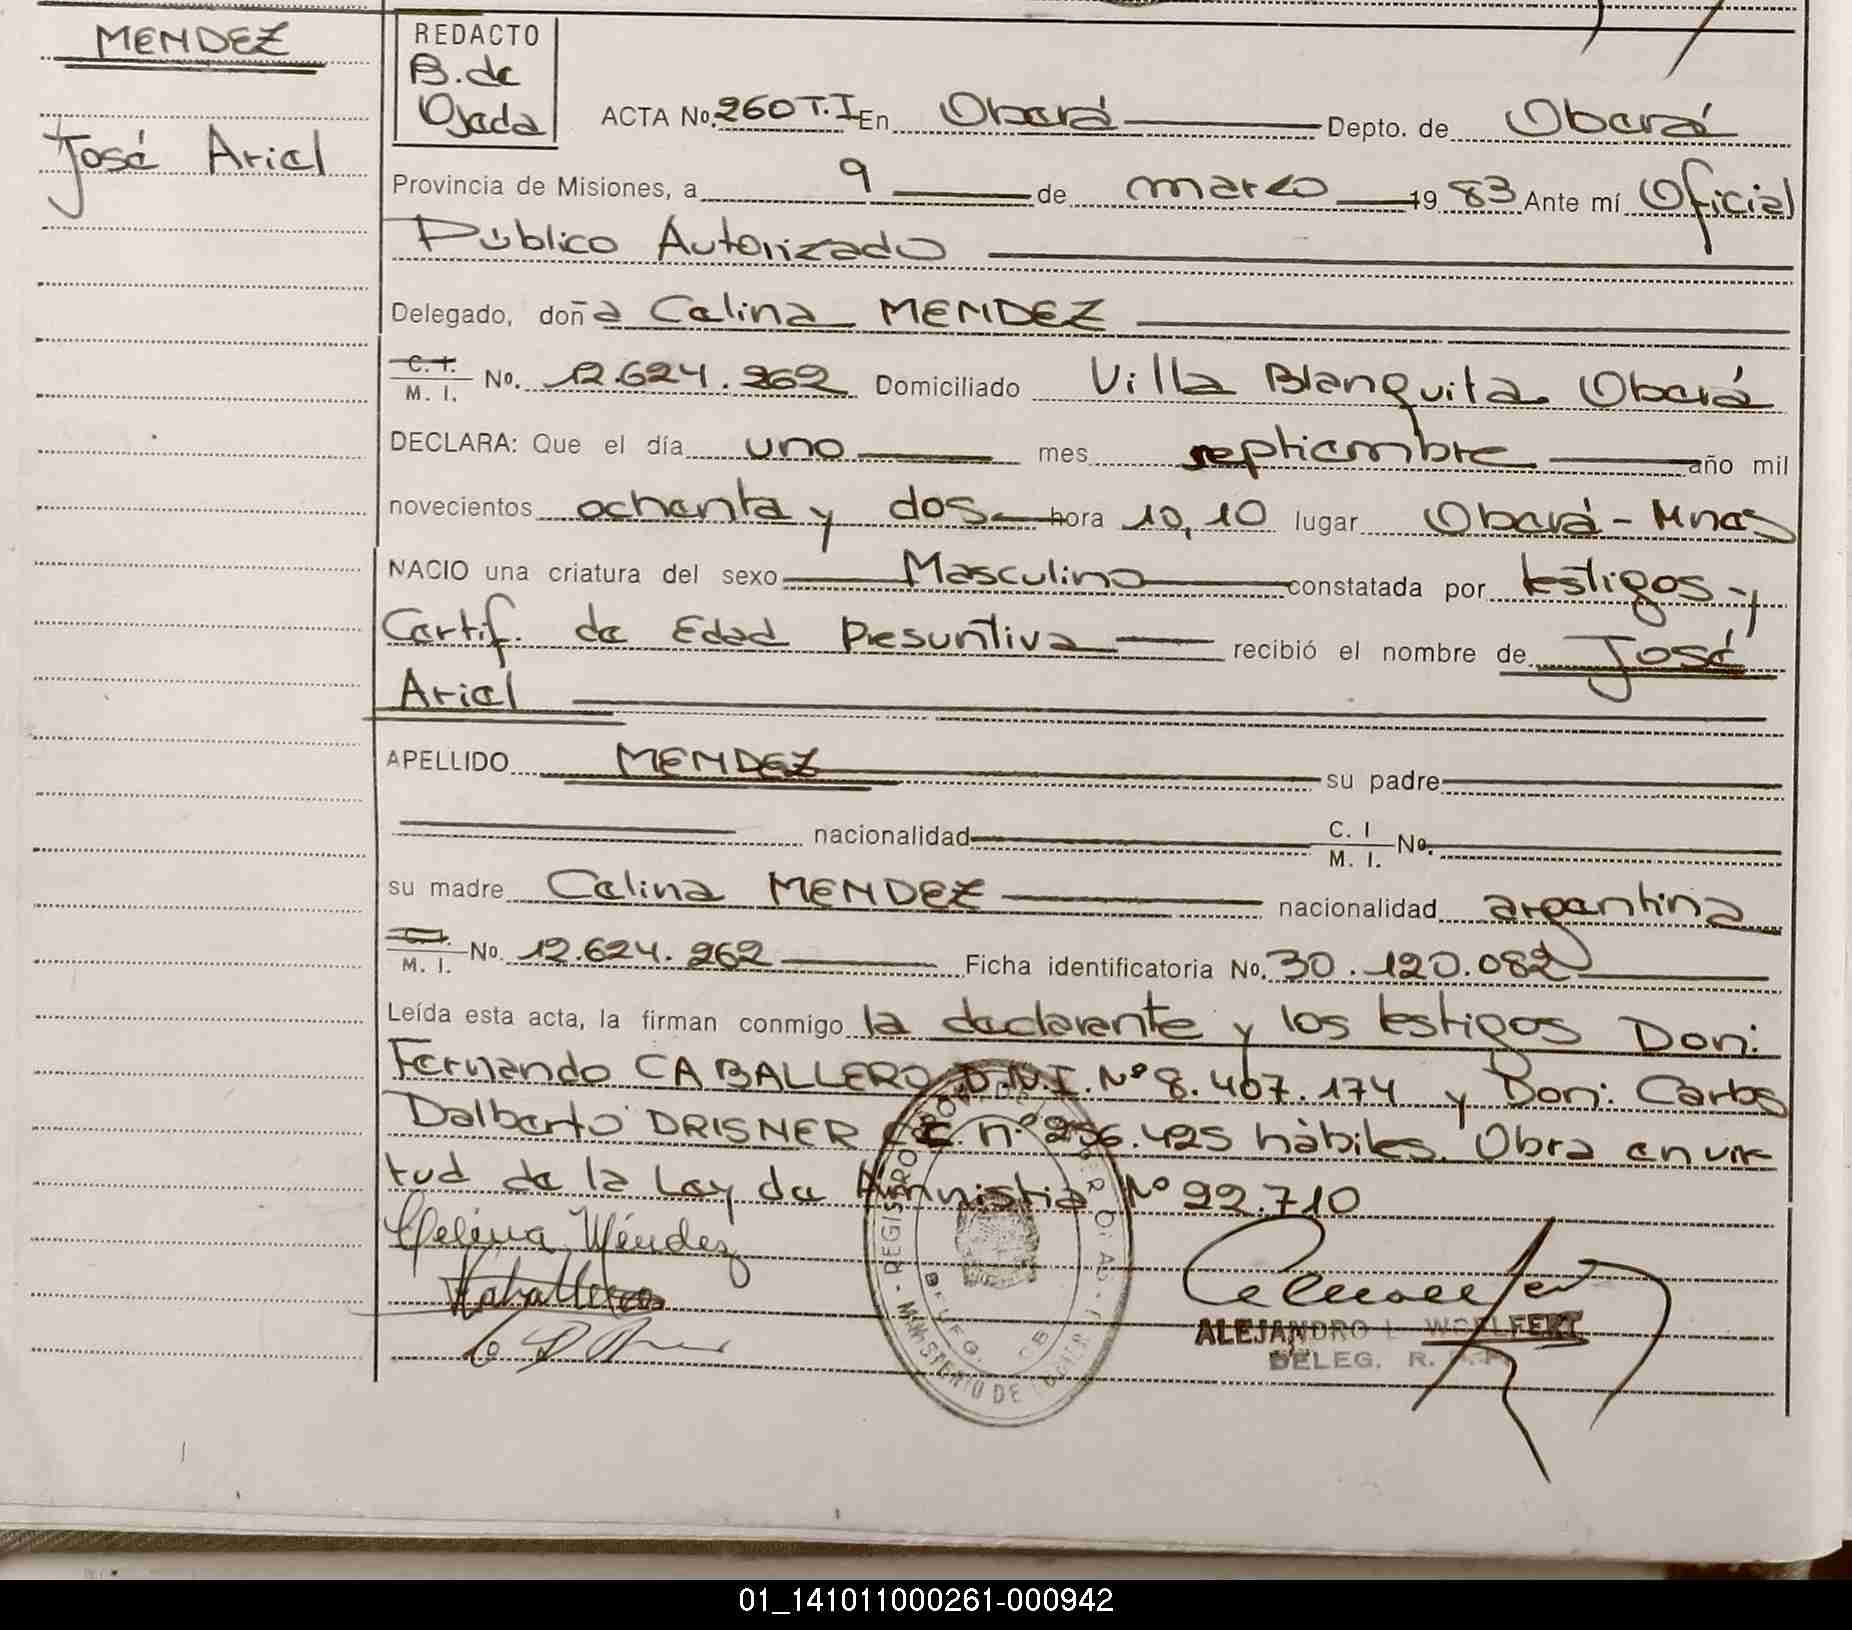 MENDEZ
José Ariel
REDACTO
B. de
Ojeda
ACTA No. 260 T. I En Oberá Depto. de Oberá
Provincia de Misiones, a 9 de marzo 19 83 Ante mí Oficial
Público Autorizado
Delegado, doña Celina MENDEZ
C. I. M. I. No. 12.624.262 Domiciliado Villa Blanquita Oberá
DECLARA: Que el día uno mes septiembre año mil
novecientos ochenta y dos hora 10,10 lugar Oberá - Mnes
NACIO una criatura del sexo Masculino constatada por testigos y
Certif. de Edad Presuntiva recibió el nombre de José
Ariel
APELLIDO MENDEZ su padre
nacionalidad C. I M. I. No.
su madre Celina MENDEZ nacionalidad argentina
M. I. No. 12.624.262 Ficha identificatoria No. 30.120.082
Leída esta acta, la firman conmigo la declarante y los testigos Don:
Fernando CABALLERO D.N.I. Nº 8.407.174 y Don: Carlos
Dalberto DRISNER C.I. nº 256.425 hàbiles. Obra en vir
tud de la Ley de Amnistia Nº 22.710
Celina Méndez
Caballero
ALEJANDRO L. WOELFERT
DELEG. R.
REGISTRO PROV. DE
MINISTERIO DE
DELEG.
01_141011000261-000942